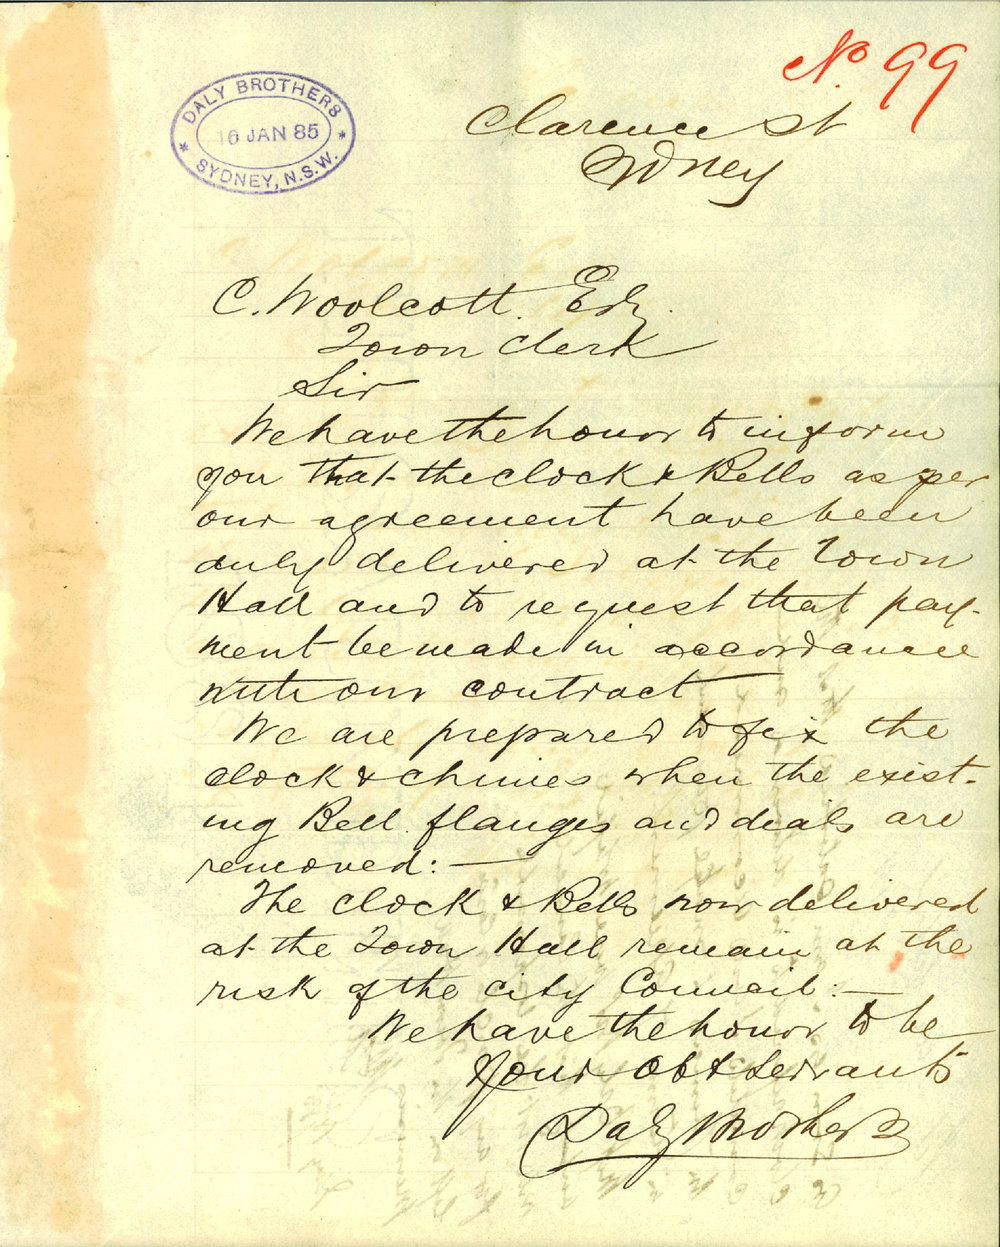 No 99
DALY BROTHERS
16 JAN 85
SYDNEY, N.S.W.
Clarence St
Sydney
C. Woolcott. Esq.
Town Clerk
Sir
We have the honor to inform
you that the clock & Bells as per
our agreement have been
duly delivered at the Town
Hall and to request that pay-
ment be made in accordance
with our contract
We are prepared to fix the
clock & chimes when the exist-
ing Bell flanges and deals are
removed: —
The clock & Bells now delivered
at the Town Hall remain at the
risk of the city Council: —
We have the honor to be
Your Obt Servants
Daly Brothers